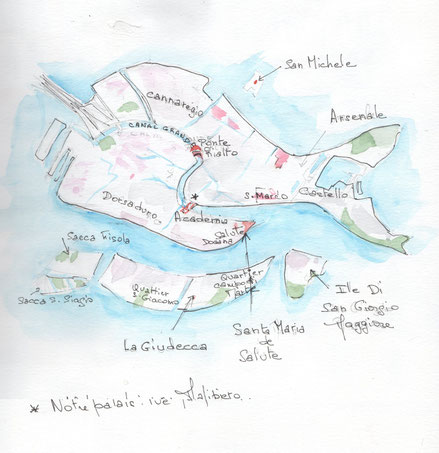 San Michele
Cannaregio
Arsenale
CANAL GRANDE
Ponte
Rialto
S. Marco
Castello
Dorsaduro
*
Academia
Salute
Dogana
Sacca Fisola
Quartier
S. Giacomo
Quartier
campo di
Marte
Sacca S. Biagio
Ile Di
San Giorgio
Maggiore
La Giudecca
Santa Maria
de
Salute
* Notre palais : rue